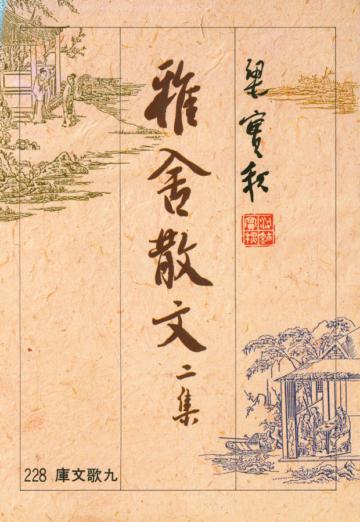 梁實秋
雅舍散文
二集
九歌文庫 228